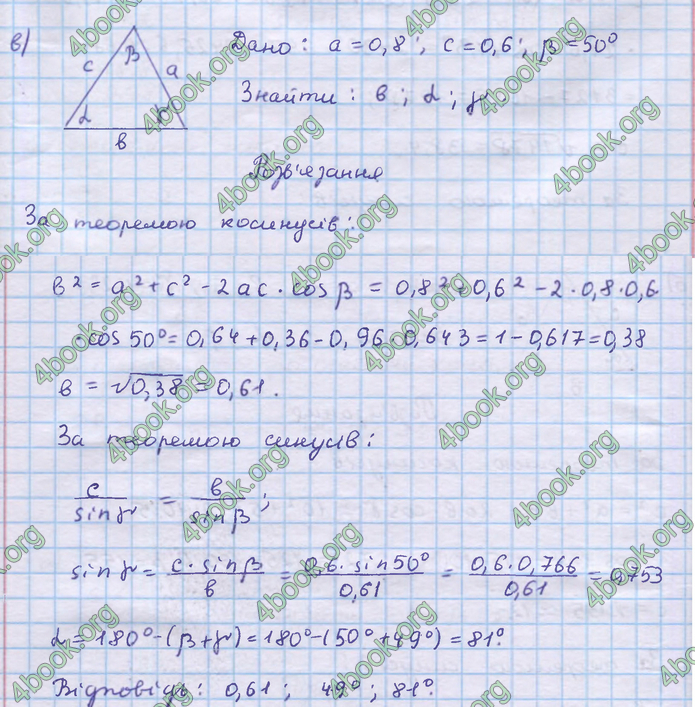 в)
β
c
a
α
γ
в
Дано: a = 0,8; c = 0,6; β = 50°
Знайти: в; α; γ
Розв'язання
За теоремою косинусів:
в² = a² + c² - 2ac · cos β = 0,8² + 0,6² - 2 · 0,8 · 0,6 ·
· cos 50° = 0,64 + 0,36 - 0,96 · 0,643 = 1 - 0,617 = 0,38
в = √0,38 = 0,61.
За теоремою синусів:
c / sin γ = в / sin β;
sin γ = c · sin β / в = 0,6 · sin 50° / 0,61 = 0,6 · 0,766 / 0,61 = 0,753
α = 180° - (β + γ) = 180° - (50° + 49°) = 81°.
Відповідь: 0,61; 49°; 81°.
4book.org